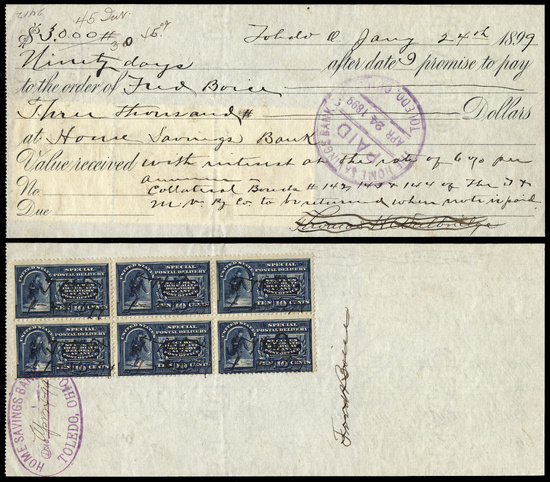 $3,000#
Toledo O Jany 24th 1899
Ninety days after date I promise to pay
to the order of Fred Boice
Three thousand # Dollars
at Home Savings Bank
Value received with interest at the rate of 6% per
annum
No. Collatteral Bonds # 142, 143 & 144 of The T &
Due M. V. Ry Co. to be returned when note is paid
HOME SAVINGS BANK TOLEDO, OHIO
PAID
APR 24 1899
UNITED STATES SPECIAL POSTAL DELIVERY
TEN 10 CENTS
UNITED STATES SPECIAL POSTAL DELIVERY
TEN 10 CENTS
UNITED STATES SPECIAL POSTAL DELIVERY
TEN 10 CENTS
UNITED STATES SPECIAL POSTAL DELIVERY
TEN 10 CENTS
UNITED STATES SPECIAL POSTAL DELIVERY
TEN 10 CENTS
UNITED STATES SPECIAL POSTAL DELIVERY
TEN 10 CENTS
HOME SAVINGS BANK
TOLEDO, OHIO
Fred Boice